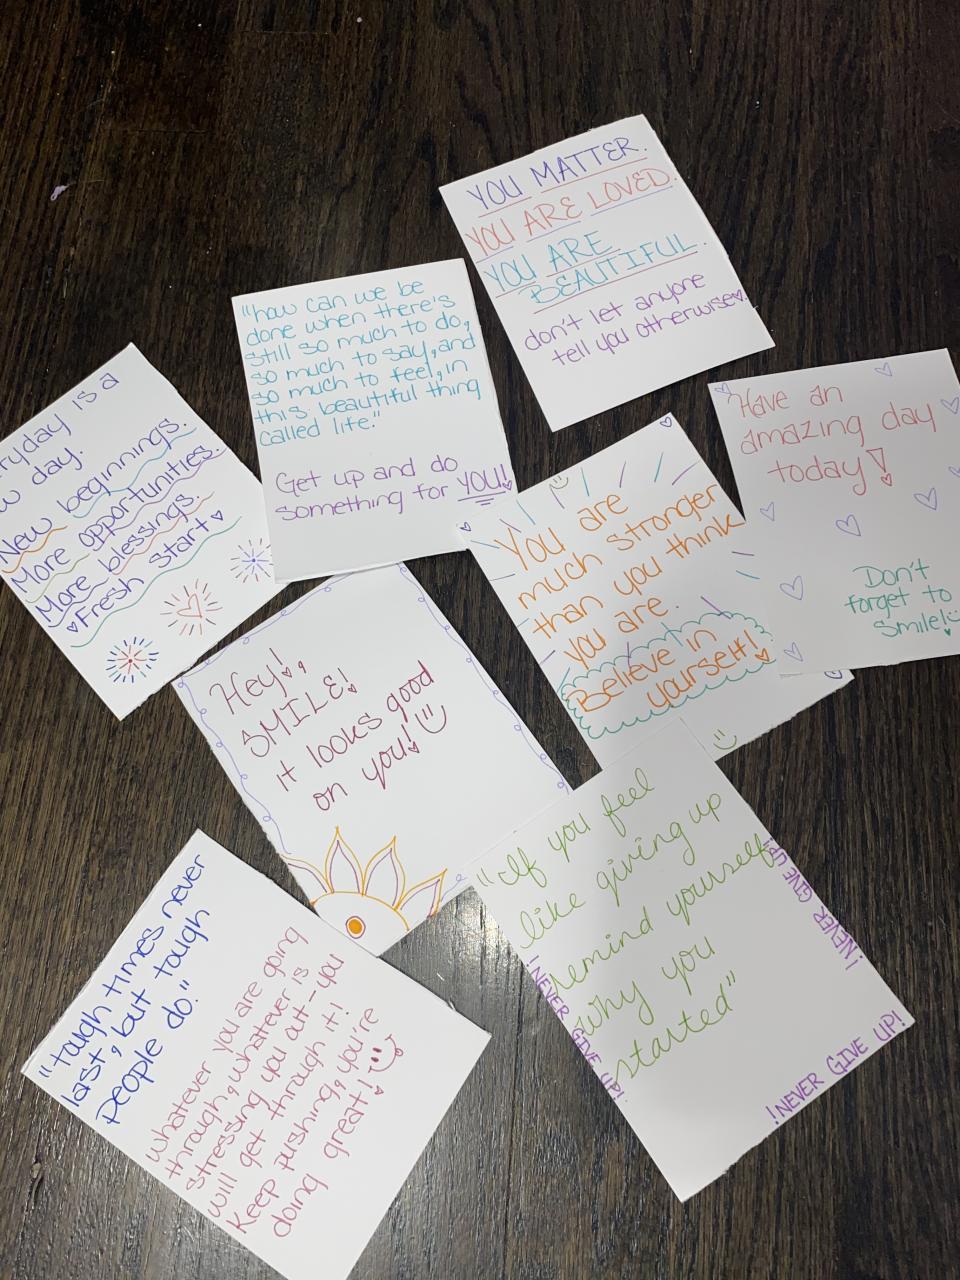 YOU MATTER.
YOU ARE LOVED.
YOU ARE
BEAUTIFUL.
don't let anyone
tell you otherwise
"how can we be
done when there's
still so much to do,
so much to say, and
so much to feel, in
this beautiful thing
called life."
Get up and do
something for YOU!
ryday is a
w day.
New beginnings.
More opportunities.
More blessings.
Fresh start
Have an
amazing day
today!
Don't
forget to
Smile!
You are
much stronger
than you think
you are.
Believe in
yourself!
Hey!,
SMILE!
it looks good
on you!
"If you feel
like giving up
remind yourself
why you
started"
!NEVER GIVE UP!
!NEVER GIVE UP!
!NEVER GIVE UP
"tough times never
last, but tough
people do."
whatever you are going
through, whatever is
stressing you out-you
will get through it!
Keep pushing, you're
doing great!